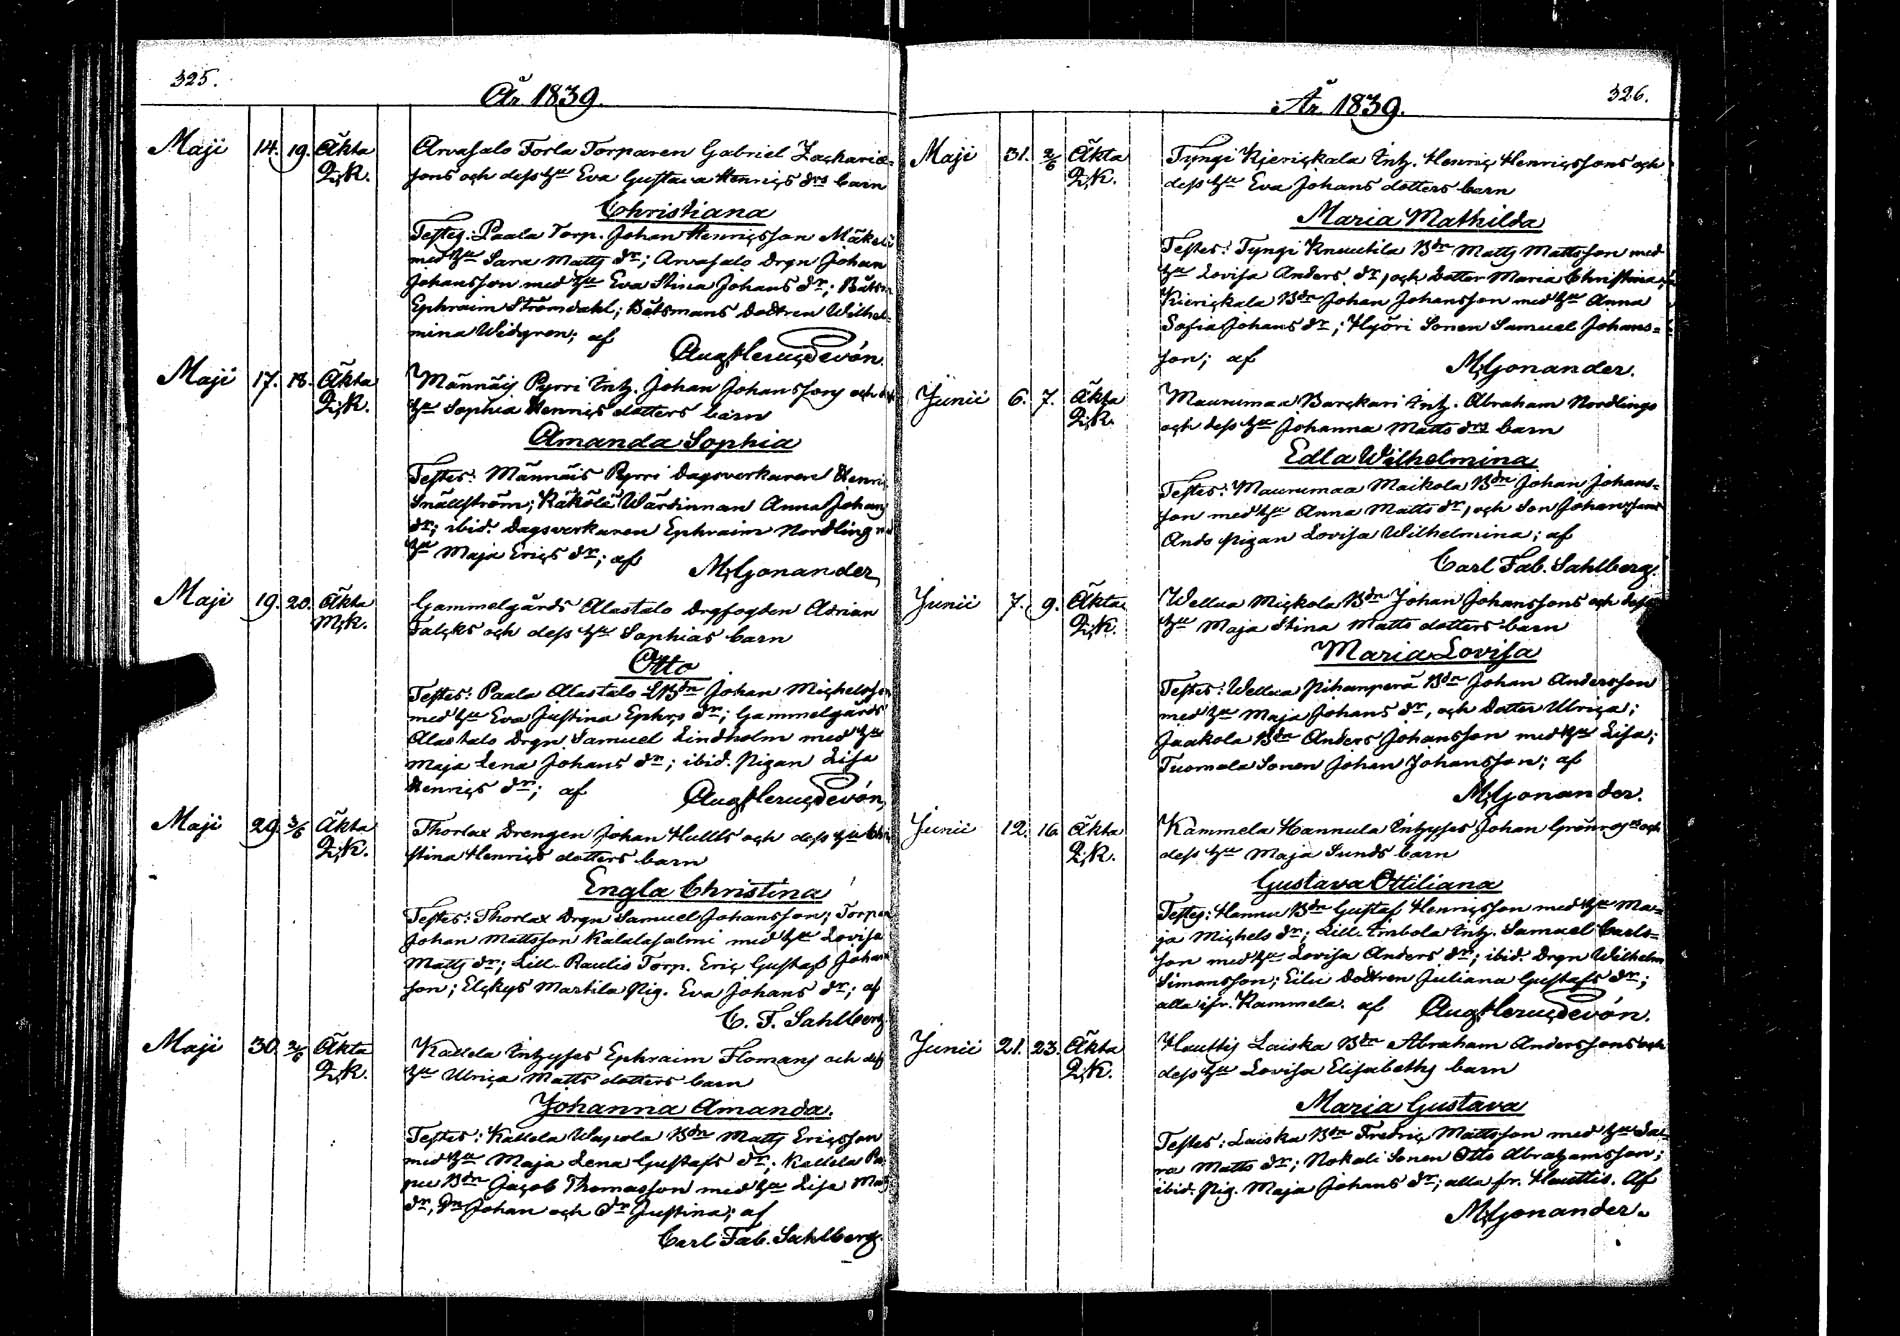 325.
År 1839.
Maji 14. 19. Äkta Arvasalo Forla Torparen Gabriel Zacharias-
Q.K. sons och dess hu Eva Gustava Henrics drs barn
Christiana
Testes: Paala Torp. Johan Henricsson Mäkelä
med hu Sara Matts dr; Arvasalo Drgn Johan
Johansson med hu Eva Stina Johans dr; Båtsm
Ephraim Strömdahl; Båtsmans Dottren Wilhel-
mina Widgren; af
Maji 17. 18. Äkta Männäis Pyrri Inh. Johan Johanssons och
Q.K. hu Sophia Henrics dotters barn
Amanda Sophia
Testes: Männäis Pyrri Dagsverkaren Henric
Snällström; Käkölä Wärdinnan Anna Johans
dr; ibid. Dagsverkaren Ephraim Nordling
hu Maja Erics dr; af
M. Gonander
Maji 19. 20. Äkta Gammelgårds Alastalo Drgfogden Adrian
M.K. Falcks och dess hu Sophias barn
Otto
Testes: Paala Alastalo LBdn Johan Michelsson
med hu Eva Justina Ephrs dr; Gammelgårds
Alastalo Drgn Samuel Lindholm med hu
Maja Lena Johans dr; ibid. Pigan Lisa
Henrics dr; af
Maji 29. 3/6 Äkta Thorlax Drengen Johan Hulls och dess hu Chri
Q.K. stina Henrics dotters barn
Engla Christina
Testes: Thorlax Drgn Samuel Johansson; Torpar
Johan Mattsson Kalalasalmi med hu Lovisa
Matts dr; Lill-Raulis Torp. Eric Gustaf Johans
son; Elckys Martila Pig. Eva Johans dr; af
C. F. Sahlberg.
Maji 30. 2/6 Äkta Kallela Inhyses Ephraim Flomans och dess
Q.K. hu Ulrica Matts dotters barn
Johanna Amanda.
Testes: Kallela Bdn Matts Ericsson
med hu Maja Lena Gustafs dr; Kallela
Bdn Jacob Thomasson med hu Lisa Matts
dr, Sn Johan och dr Justina; af
Carl Fab. Sahlberg.
326.
År 1839.
Maji 31. 2/6 Äkta Tyngi Kierickala Inh. Henric Henricssons och
Q.K. dess hu Eva Johans dotters barn
Maria Mathilda
Testes: Tyngi Knuutila Bdn Matts Mattsson med
hu Lovisa Anders dr, och Dotter Maria Christina;
Kierickala Bdn Johan Johansson med hu Anna
Sofia Johans dr; Hyöri Sonen Samuel Johans-
son; af M. Gonander.
Junii 6. 7. Äkta Maurumaa Barckari Inh. Abraham Nordlings
Q.K. och dess hu Johanna Matts drs barn
Edla Wilhelmina
Testes: Maurumaa Maikola Bdn Johan Johans-
son med hu Anna Matts dr, och Son Johan;
Pigan Lovisa Wilhelmina; af
Carl Fab. Sahlberg.
Junii 7. 9. Äkta Wellua Mickola Bdn Johan Johanssons och dess
Q.K. hu Maja Stina Matts dotters barn
Maria Lovisa
Testes: Wellua Pihamperä Bdn Johan Andersson
med hu Maja Johans dr, och Dotter Ulrica;
Jaakola Bdn Anders Johansson med hu Lisa;
Tuomola Sonen Johan Johansson; af
M. Gonander.
Junii 12. 16. Äkta Kammela Hannula Inhyses Johan Grönroos och
Q.K. dess hu Maja Sunds barn
Gustava Ottiliana
Testes: Hannu Bdn Gustaf Henricsson med hu Ma-
ja Michels dr; Lill-Embola Inh. Samuel Carls-
son med hu Lovisa Anders dr; ibid. Drgn Wilhelm
Simonsson; Eilu Dottren Juliana Gustafs dr;
alla ifr. Kammela. af
Junii 21. 23. Äkta Hauttis Laiska Bdn Abraham Anderssons och
Q.K. dess hu Lovisa Elisabeths barn
Maria Gustava
Testes: Laiska Bdn Fredric Mattsson med hu Sa-
ra Matts dr; Nokali Sonen Otto Abrahamsson;
ibid. Pig. Maja Johans dr; alla fr. Hauttis. Af
M. Gonander.